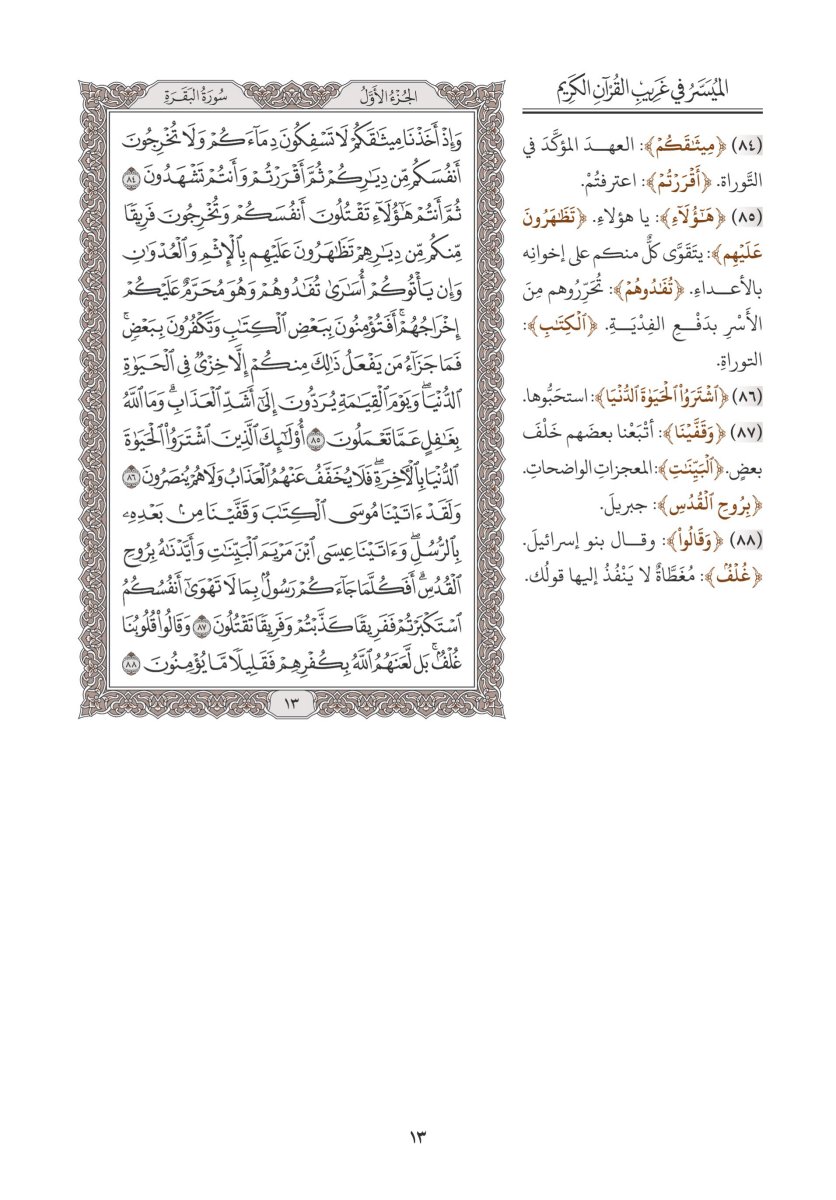 المُيَسَّرُ في غَرِيبِ القُرْآنِ الكَرِيمِ
(٨٤) ﴿مِيثَٰقَكُمۡ﴾: العهدَ المؤكَّدَ في
التَّوراة. ﴿أَقۡرَرۡتُمۡ﴾: اعترفتُمْ.
(٨٥) ﴿هَٰٓؤُلَآءِ﴾: يا هؤلاءِ. ﴿تَظَٰهَرُونَ
عَلَيۡهِم﴾: يتقَوَّى كلٌّ منكم على إخوانِه
بالأعداءِ. ﴿تُفَٰدُوهُمۡ﴾: تُحَرِّروهم مِنَ
الأَسْرِ بدَفْعِ الفِدْيَةِ. ﴿ٱلۡكِتَٰبِ﴾:
التوراةِ.
(٨٦) ﴿ٱشۡتَرَوُاْ ٱلۡحَيَوٰةَ ٱلدُّنۡيَا﴾: استحَبُّوها.
(٨٧) ﴿وَقَفَّيۡنَا﴾: أتْبَعْنا بعضَهم خَلْفَ
بعضٍ. ﴿ٱلۡبَيِّنَٰتِ﴾: المعجزاتِ الواضحاتِ.
﴿بِرُوحِ ٱلۡقُدُسِ﴾: جبريلَ.
(٨٨) ﴿وَقَالُواْ﴾: وقال بنو إسرائيلَ.
﴿غُلۡفُۢ﴾: مُغَطَّاةٌ لا يَنْفُذُ إليها قولُك.
الجُزْءُ الأَوَّلُ
سُورَةُ البَقَرَةِ
وَإِذۡ أَخَذۡنَا مِيثَٰقَكُمۡ لَا تَسۡفِكُونَ دِمَآءَكُمۡ وَلَا تُخۡرِجُونَ
أَنفُسَكُم مِّن دِيَٰرِكُمۡ ثُمَّ أَقۡرَرۡتُمۡ وَأَنتُمۡ تَشۡهَدُونَ ٨٤
ثُمَّ أَنتُمۡ هَٰٓؤُلَآءِ تَقۡتُلُونَ أَنفُسَكُمۡ وَتُخۡرِجُونَ فَرِيقٗا
مِّنكُم مِّن دِيَٰرِهِمۡ تَظَٰهَرُونَ عَلَيۡهِم بِٱلۡإِثۡمِ وَٱلۡعُدۡوَٰنِ
وَإِن يَأۡتُوكُمۡ أُسَٰرَىٰ تُفَٰدُوهُمۡ وَهُوَ مُحَرَّمٌ عَلَيۡكُمۡ
إِخۡرَاجُهُمۡۚ أَفَتُؤۡمِنُونَ بِبَعۡضِ ٱلۡكِتَٰبِ وَتَكۡفُرُونَ بِبَعۡضٖۚ
فَمَا جَزَآءُ مَن يَفۡعَلُ ذَٰلِكَ مِنكُمۡ إِلَّا خِزۡيٞ فِي ٱلۡحَيَوٰةِ
ٱلدُّنۡيَاۖ وَيَوۡمَ ٱلۡقِيَٰمَةِ يُرَدُّونَ إِلَىٰٓ أَشَدِّ ٱلۡعَذَابِۗ وَمَا ٱللَّهُ
بِغَٰفِلٍ عَمَّا تَعۡمَلُونَ ٨٥ أُوْلَٰٓئِكَ ٱلَّذِينَ ٱشۡتَرَوُاْ ٱلۡحَيَوٰةَ
ٱلدُّنۡيَا بِٱلۡأٓخِرَةِۖ فَلَا يُخَفَّفُ عَنۡهُمُ ٱلۡعَذَابُ وَلَا هُمۡ يُنصَرُونَ ٨٦
وَلَقَدۡ ءَاتَيۡنَا مُوسَى ٱلۡكِتَٰبَ وَقَفَّيۡنَا مِنۢ بَعۡدِهِۦ
بِٱلرُّسُلِۖ وَءَاتَيۡنَا عِيسَى ٱبۡنَ مَرۡيَمَ ٱلۡبَيِّنَٰتِ وَأَيَّدۡنَٰهُ بِرُوحِ
ٱلۡقُدُسِۗ أَفَكُلَّمَا جَآءَكُمۡ رَسُولُۢ بِمَا لَا تَهۡوَىٰٓ أَنفُسُكُمُ
ٱسۡتَكۡبَرۡتُمۡ فَفَرِيقٗا كَذَّبۡتُمۡ وَفَرِيقٗا تَقۡتُلُونَ ٨٧ وَقَالُواْ قُلُوبُنَا
غُلۡفُۢۚ بَل لَّعَنَهُمُ ٱللَّهُ بِكُفۡرِهِمۡ فَقَلِيلٗا مَّا يُؤۡمِنُونَ ٨٨
١٣
١٣